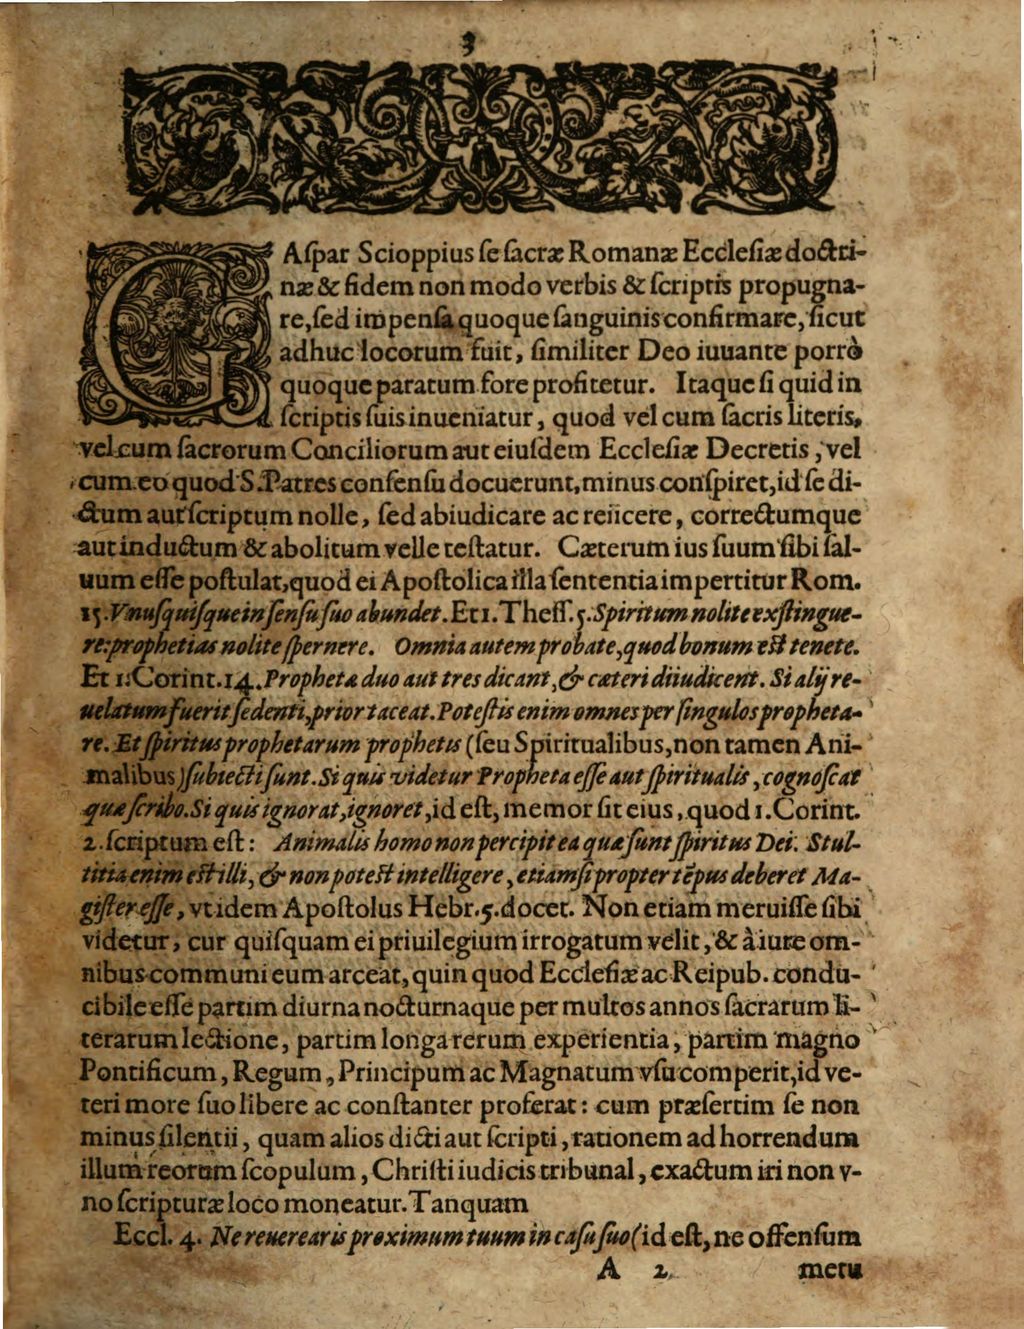 3
GAſpar Scioppius ſe ſacræ Romanæ Eccleſiæ doctri-
næ & fidem non modo verbis & ſcriptis propugna-
re, ſed impenſa quoque ſanguinis confirmare, ſicut
adhuc locorum fuit, ſimiliter Deo iuuante porrò
quoque paratum fore profitetur. Itaque ſi quid in
ſcriptis ſuis inueniatur, quod vel cum ſacris literis,
vel cum ſacrorum Conciliorum aut eiuſdem Eccleſiæ Decretis, vel
cum eo quod S. Patres conſenſu docuerunt, minus conſpiret, id ſe di-
ctum aut ſcriptum nolle, ſed abiudicare ac reiicere, correctumque
aut inductum & abolitum velle teſtatur. Cæterum ius ſuum ſibi ſal-
uum eſſe poſtulat, quod ei Apoſtolica illa ſententia impertitur Rom.
15. Vnuſquiſque in ſenſu ſuo abundet. Et 1. Theſſ. 5. Spiritum nolite exſtingue-
re: prophetias nolite ſpernere. Omnia autem probate, quod bonum eſt tenete.
Et 1. Corint. 14. Prophetæ duo aut tres dicant, & cæteri diiudicent. Si alij re-
uelatum fuerit ſedenti, prior taceat. Poteſtis enim omnes per ſingulos propheta-
re. Et ſpiritus prophetarum prophetis (ſeu Spiritualibus, non tamen Ani-
malibus) ſubiecti ſunt. Si quis videtur Propheta eſſe aut ſpiritualis, cognoſcat
quæ ſcribo. Si quis ignorat, ignoret, id eſt, memor ſit eius, quod 1. Corint.
2. ſcriptum eſt: Animalis homo non percipit ea quæ ſunt ſpiritus Dei. Stul-
titia enim eſt illi, & non poteſt intelligere, etiamſi propter tēpus deberet Ma-
giſter eſſe, vt idem Apoſtolus Hebr. 5. docet. Non etiam meruiſſe ſibi
videtur, cur quiſquam ei priuilegium irrogatum velit, & à iure om-
nibus communi eum arceat, quin quod Eccleſiæ ac Reipub. condu-
cibile eſſe partim diurna nocturnaque per multos annos ſacrarum li-
terarum lectione, partim longa rerum experientia, partim magno
Pontificum, Regum, Principum ac Magnatum vſu comperit, id ve-
teri more ſuo libere ac conſtanter proferat: cum præſertim ſe non
minus ſilentii, quam alios dicti aut ſcripti, rationem ad horrendum
illum reorum ſcopulum, Chriſti iudicis tribunal, exactum iri non v-
no ſcripturæ loco moneatur. Tanquam
Eccl. 4. Ne reuerearis proximum tuum in caſu ſuo (id eſt, ne offenſum
A 2 metu